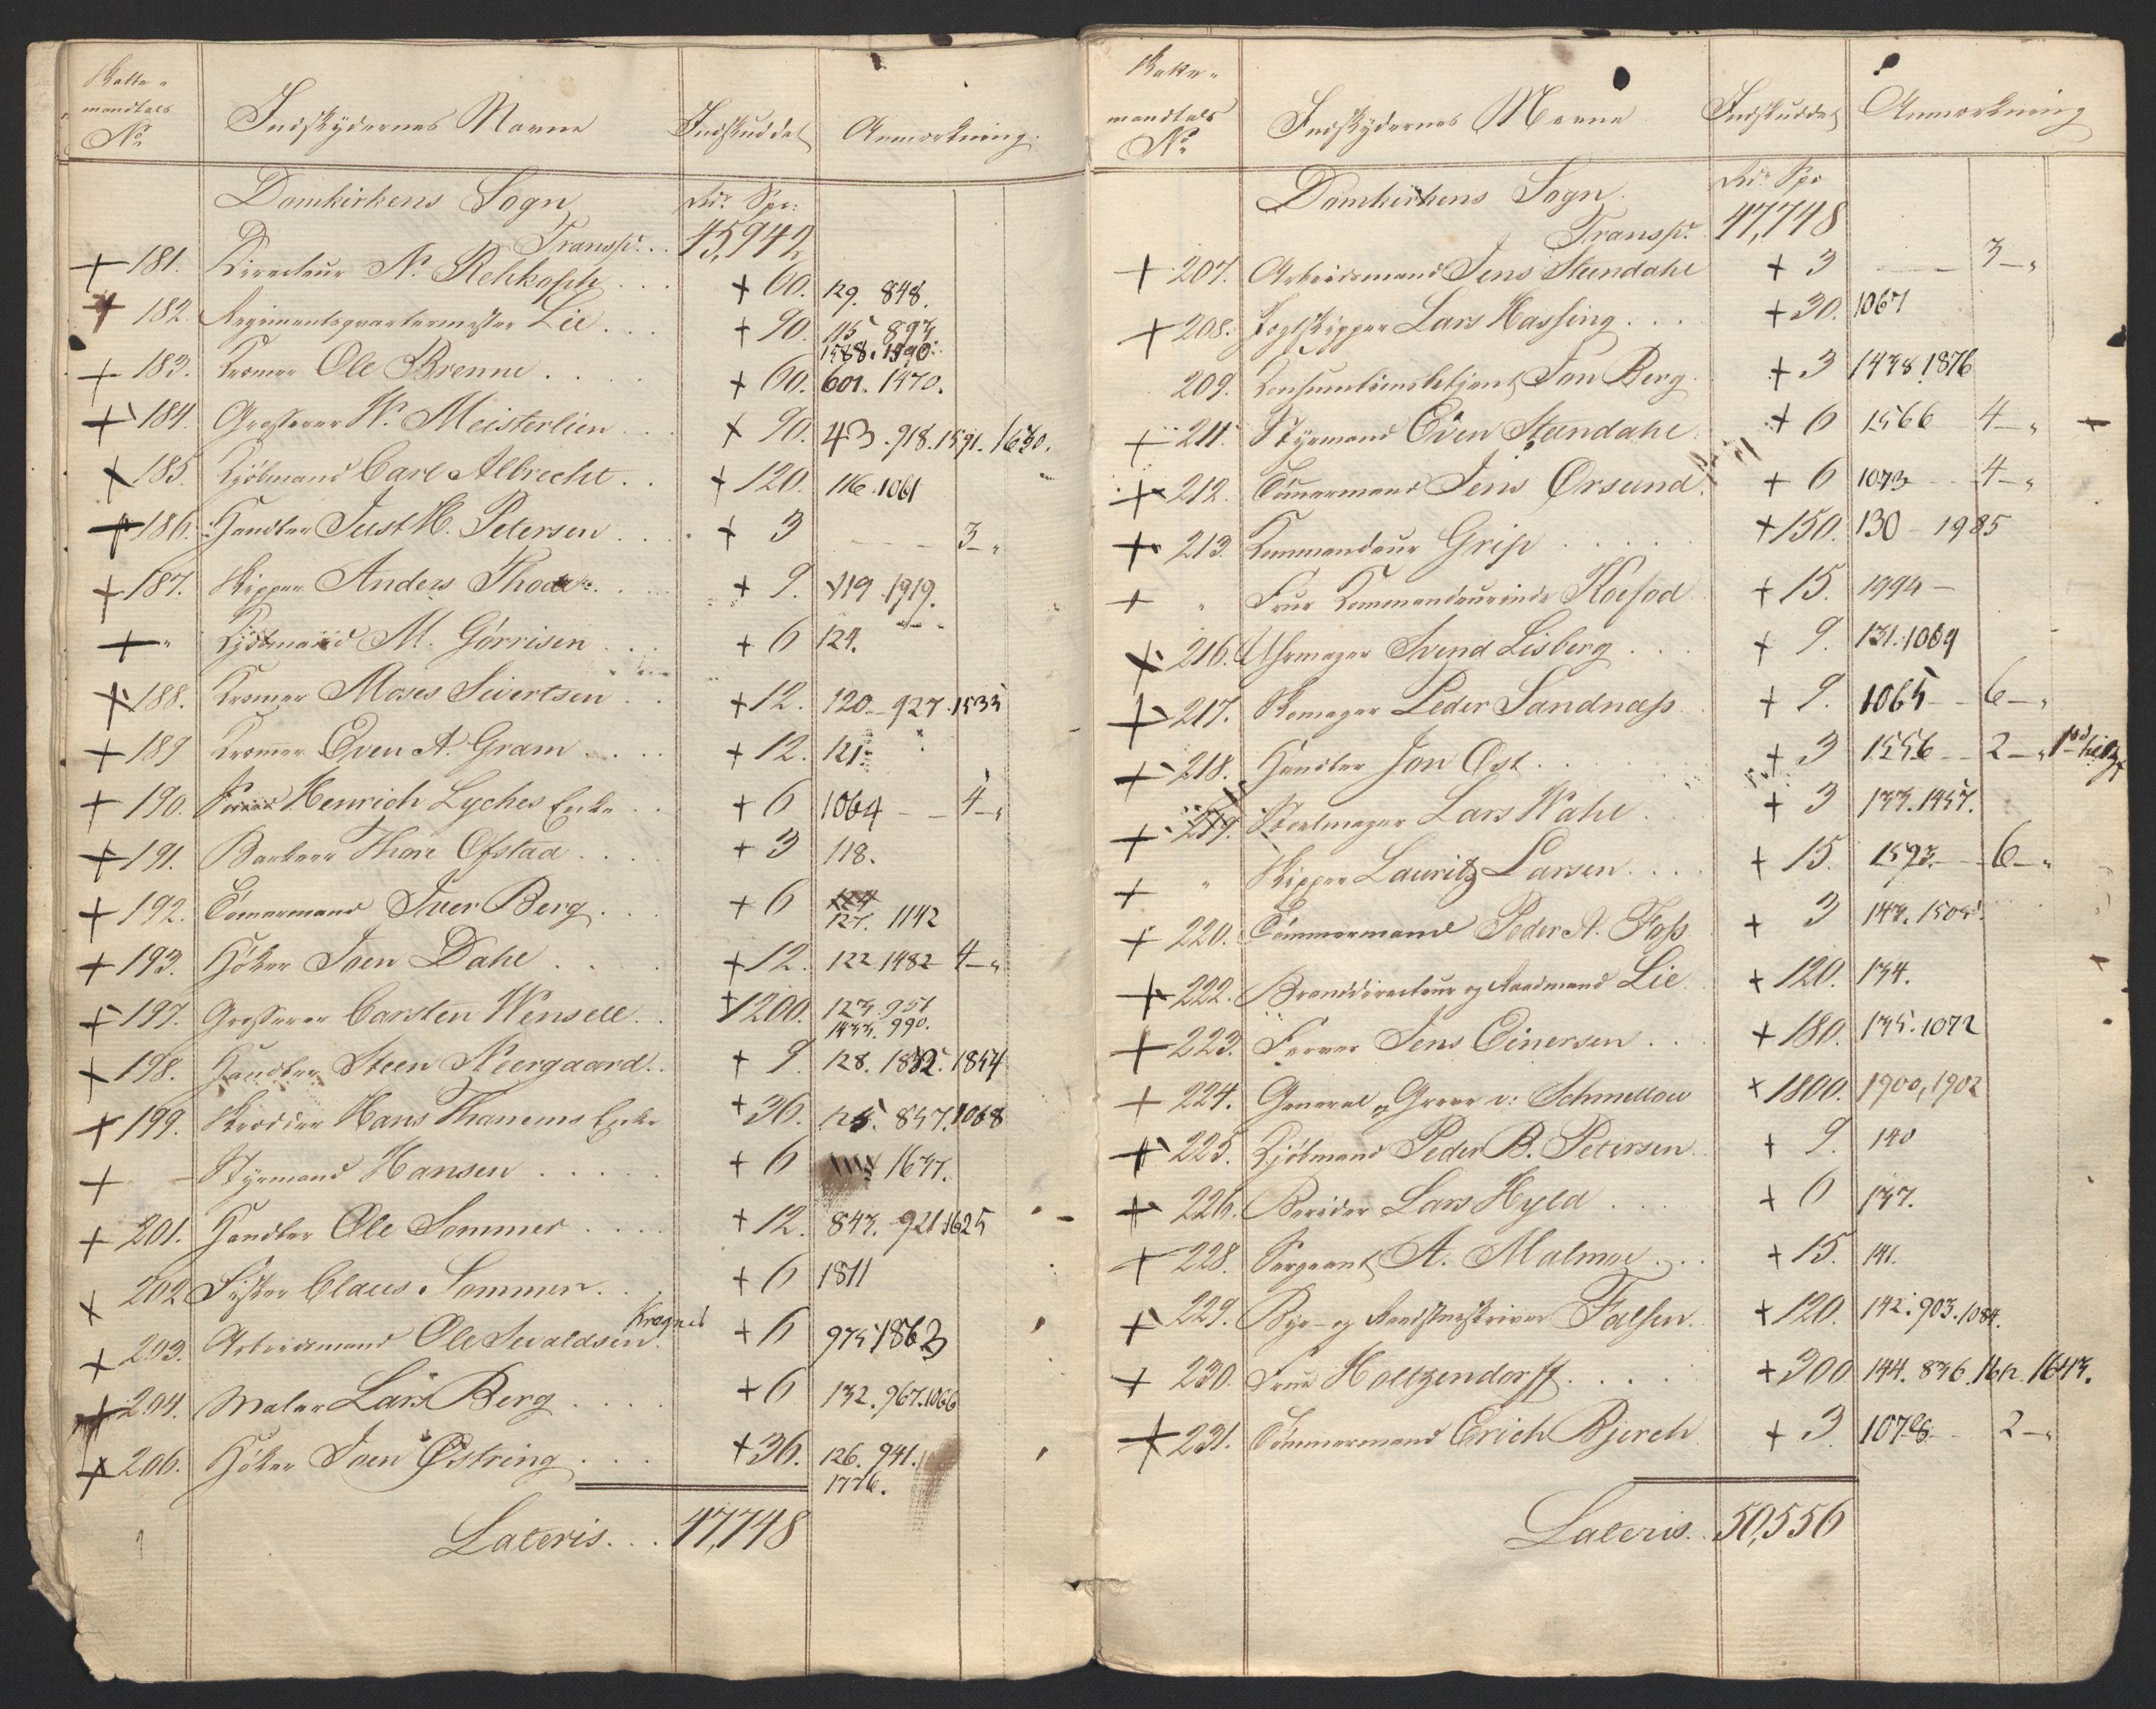 Skatte-
mandtals
No
Indskydernes Navne
Indskuddet
Anmærkning.
Domkirkens Sogn
Rdr. Spe:
Transpt. . . 45,942
+ 181. Directeur N. Rehkopff . . . + 60. 129. 848.
+ 182. Regimentsqvartermester Lie . . . + 90. 115. 893.
1588. 1590.
+ 183. Kræmer Ole Brenne . . . . + 60. 601. 1470.
+ 184. Grosserer W. Meisterlin . . . + 90. 43. 918. 1591. 1630.
+ 185. Kjöbmand Carl Albrecht . . + 120. 116. 1061
+ 186. Handler Just H. Petersen . . . + 3 - - - 3 - "
+ 187. Skipper Anders . . . . + 9. 119. 1919.
+ " Kjöbmand M. Görrisen . . . + 6 124.
+ 188. Kræmer Moses Sivertsen . . + 12. 120. 927. 1535
+ 189 Kræmer Even A. Gram . . . . + 12. 121.
+ 190. Henrich Lyches Enke . . + 6 1064 - - 4 - "
+ 191. Barbeer Thore Ofstad . . . . + 3 118.
+ 192. Tömermand Iver Berg . . . + 6
127. 1142
+ 193. Höker Joen Dahl . . . . + 12. 122. 1482 - 4 - "
+ 197. Grosserer Carsten Wensell . . + 1200. 123. 951
1433. 990.
+ 198. Handler Steen Neergaard . . + 9. 128. 1832. 1854
+ 199. Skredder Hans Thanems Enke + 36. 125. 857. 1068
+ - Styrmand Hansen . . . . . + 6 1637.
+ 201. Handler Ole Sommer . . . . + 12. 843. 921. 1625
+ 202 Fisker Claus Sommer . . + 6 1811
+ 203. Arbeidsmand Ole Sivaldsen Kragnes + 6 975 1863
+ 204. Maler Lars Berg . . . . + 6 132. 967. 1066
+ 206. Höker Joen Østring . . . + 36. 126. 941.
1776.
Lateris. . . 47,748
Skatte-
mandtals
No
Indskydernes Navne
Indskuddet
Anmærkning
Domkirkens Sogn
Rdr. Spe
Transpt. 47,748
+ 207. Arbeidsmand Jens Steendahl + 3 - - 3 - "
+ 208. Jagtskipper Lars Hassing . . . + 30. 1067
209. Consumtionsbetjent Jon Berg. + 3 1438. 1876
+ 211. Styrmand Even Steendahl + 6 1566 4 - "
+ 212. Tömermand Jens Orsund. + 6 1073 - - 4 - "
+ 213. Kommandeur Grip . . . . . + 150. 130 - 1985
+ " Frue Kommandeurinde Koefod + 15. 1994 -
+ 216. Uhrmager Svend Lisberg . . . + 9. 131. 1069
+ 217. Skomager Peder Sandnæss + 9. 1065 - - 6 - "
+ 218. Handler Jon Ost . . + 3 1556 - - 2 - "
+ 219. Stoelmager Lars Wahl . + 3 133. 1457.
+ " Skipper Lauritz Larsen . . . . + 15. 1593. - - 6 - "
+ 220. Tömmermand Peder A. Foss + 3 143. 1505.
+ 222. Branddirecteur og Raadmand Lie. + 120. 134.
+ 223. Farver Jens Einersen . . . + 180. 135. 1072
+ 224. General og Greve v: Schmettow + 1800. 1900, 1902
+ 225. Kjöbmand Peder B. Petersen. + 9. 140
+ 226. Berider Lars Hyld . . . . + 6 137.
+ 228. Sergeant A. Malmoe . . . + 15. 141.
+ 229. Bye- og Raadstueskriver Falsen. + 120. 142. 903. 1084.
+ 230. Frue Holtzendorff . . . . + 300 144. 836. 1612. 1643.
+ 231. Tömmermand Erich Bjerch + 3. 1078 - - 2 - "
Lateris. 50,556